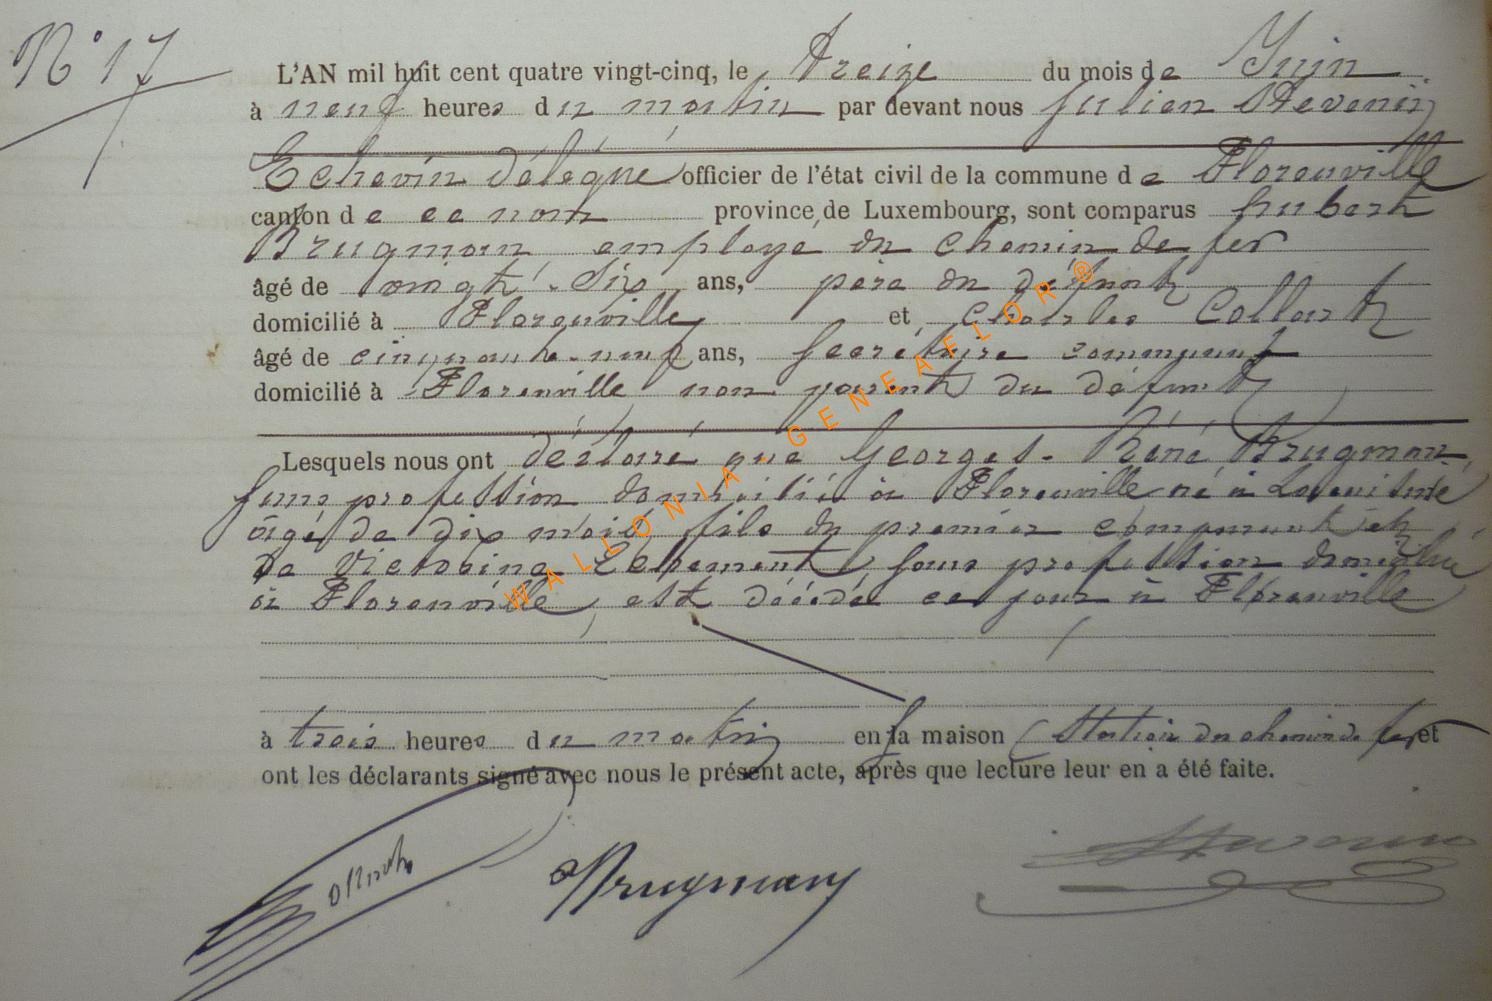 N° 17
L'AN mil huit cent quatre vingt-cinq, le treize du mois de Juin
à neuf heures du matin par devant nous Julien Stevenin
Echevin délégué officier de l'état civil de la commune de Florenville
canton de ce nom province de Luxembourg, sont comparus hubert
Brugman employé du chemin de fer
âgé de vingt-six ans, père du défunt
domicilié à Florenville et Charles Collart
âgé de cinquante-neuf ans, Secrétaire communal
domicilié à Florenville non parent du défunt
Lesquels nous ont déclaré que Georges-Réné Brugman,
sans profession domicilié à Florenville né à
âgé de dix mois, fils du premier comparant et
de Victorine sans profession domicilié
à Florenville, est décédé ce jour à Florenville
à trois heures du matin en la maison Station du chemin de fer et
ont les déclarants signé avec nous le présent acte, après que lecture leur en a été faite.
Collart Brugman Stevenin
WALLONIA-GENEAFLOR®